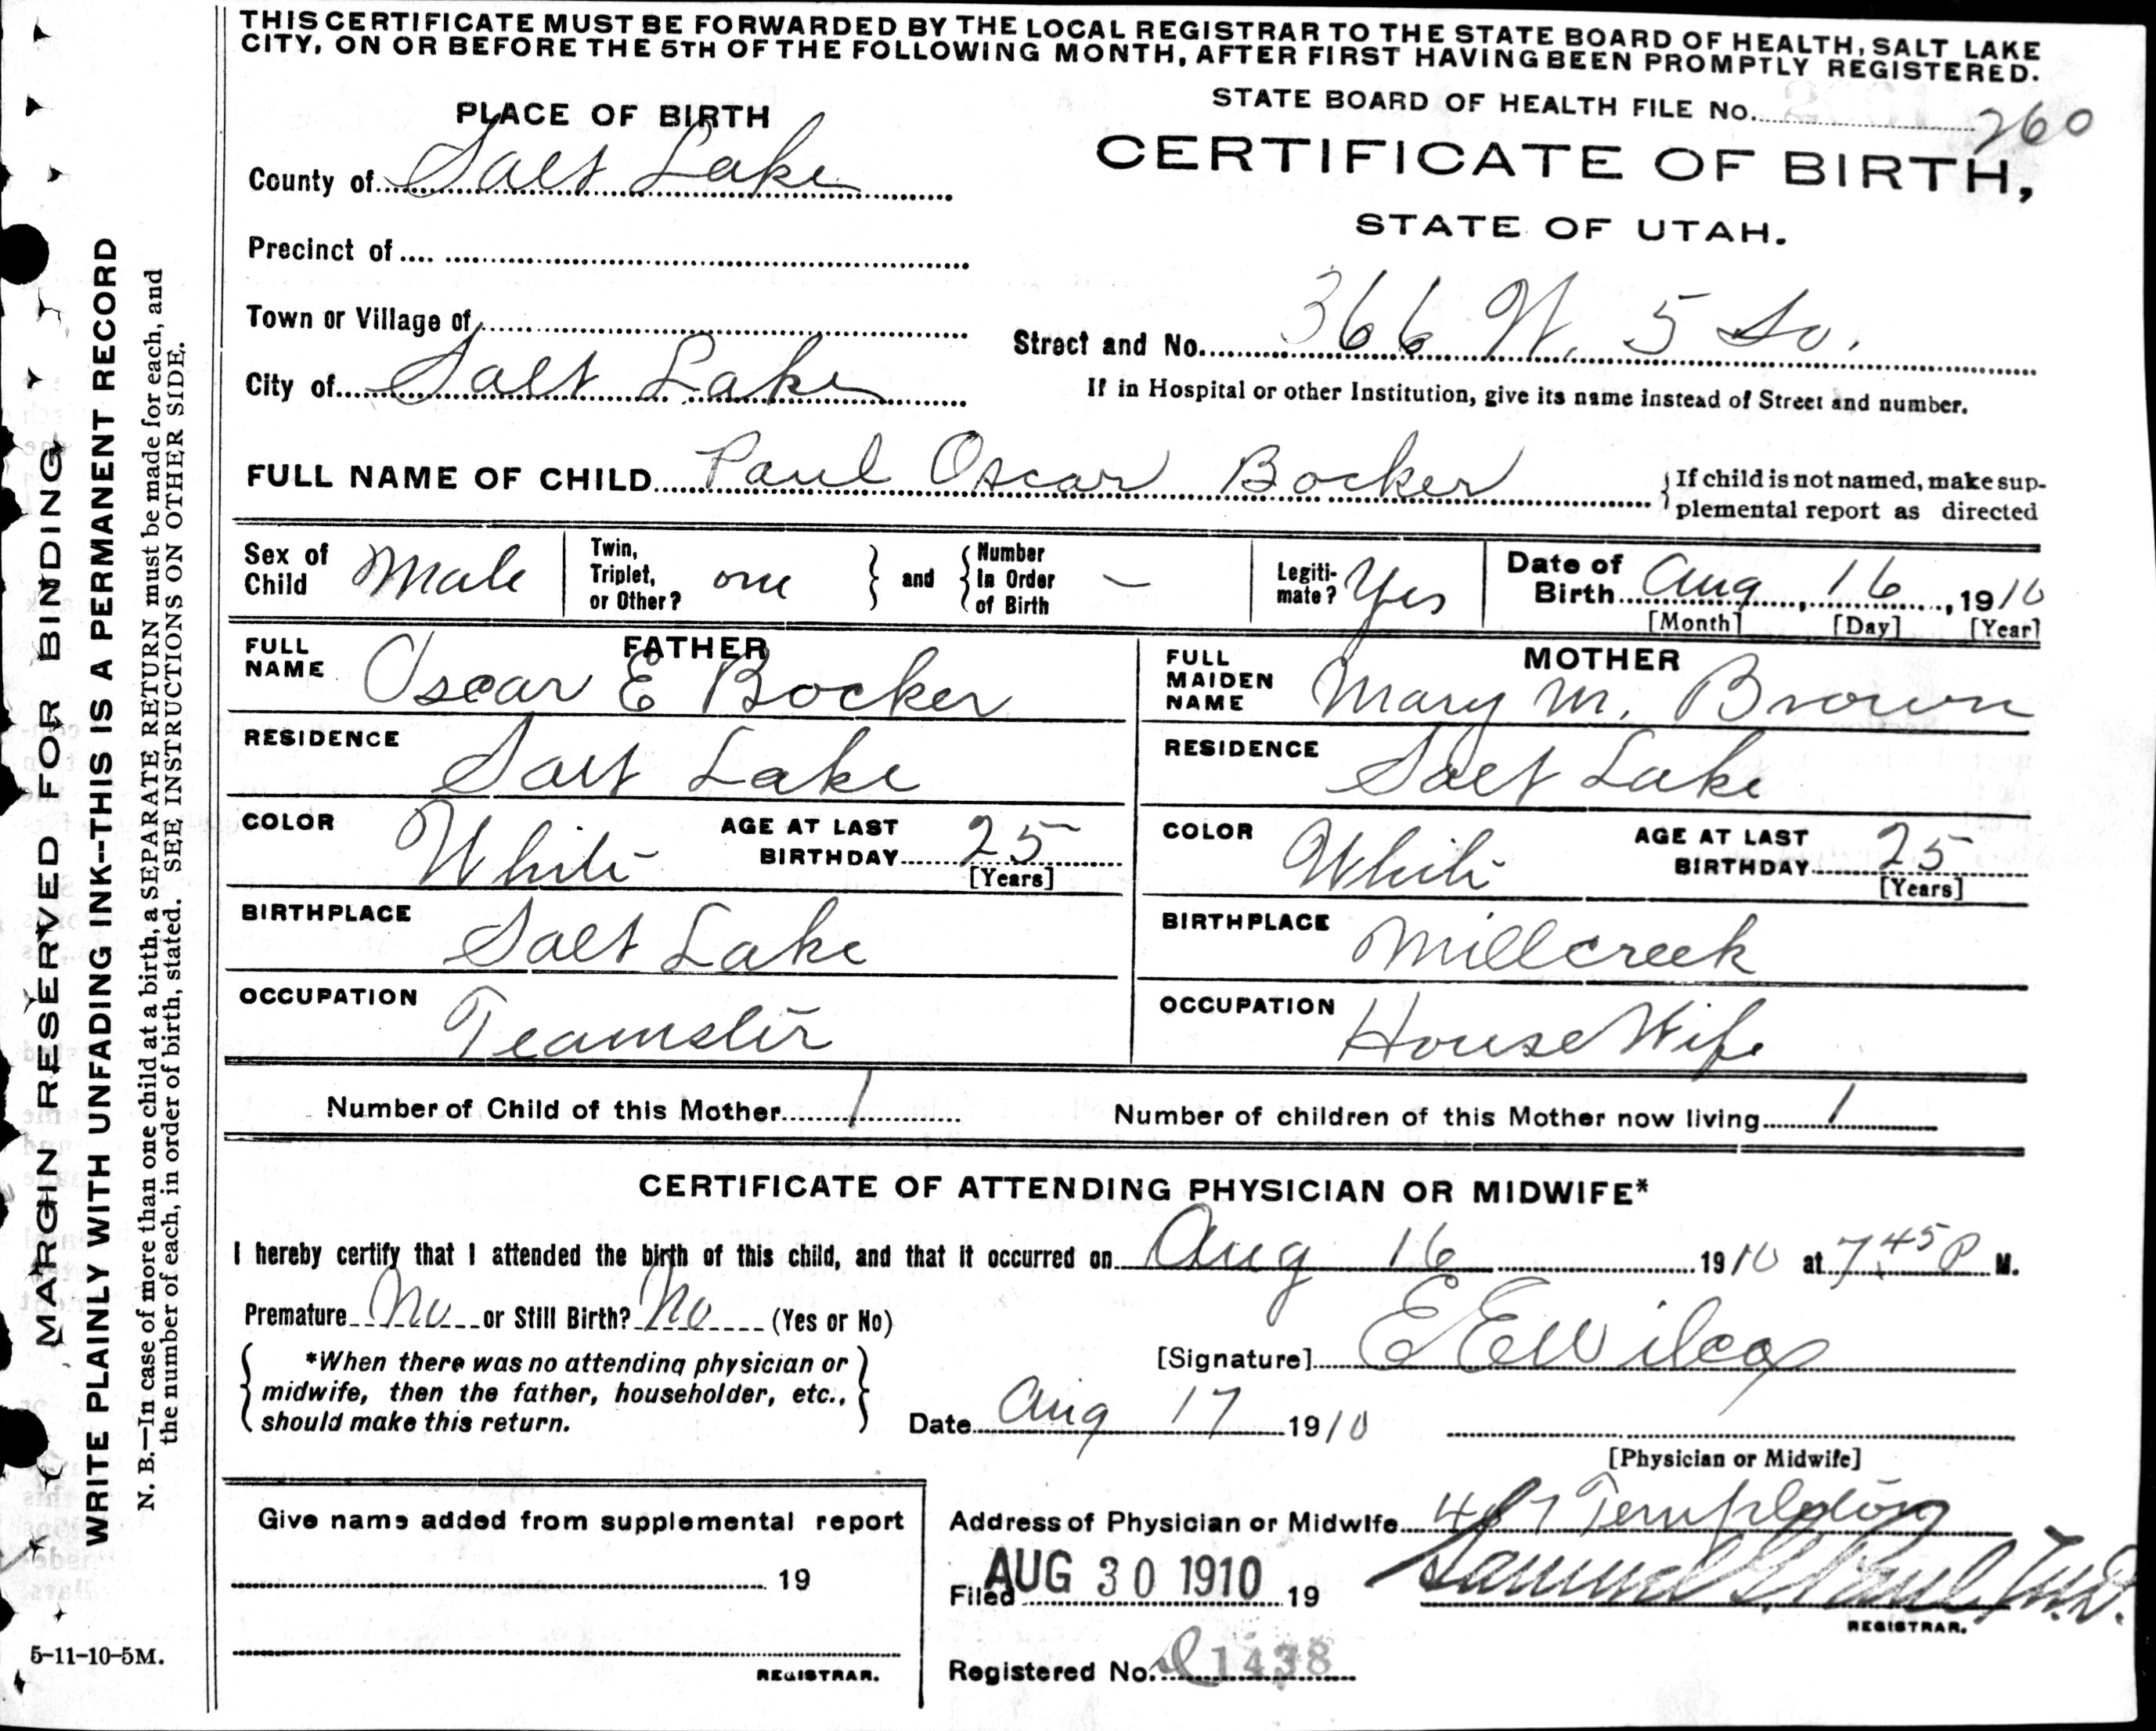 THIS CERTIFICATE MUST BE FORWARDED BY THE LOCAL REGISTRAR TO THE STATE BOARD OF HEALTH, SALT LAKE
CITY, ON OR BEFORE THE 5TH OF THE FOLLOWING MONTH, AFTER FIRST HAVING BEEN PROMPTLY REGISTERED.
STATE BOARD OF HEALTH FILE No. 260
PLACE OF BIRTH
CERTIFICATE OF BIRTH,
STATE OF UTAH.
County of Salt Lake
Precinct of
Town or Village of
Street and No. 366 W. 5 So.
City of Salt Lake
If in Hospital or other Institution, give its name instead of Street and number.
FULL NAME OF CHILD Paul Oscar Bocker
If child is not named, make sup-
plemental report as directed
Sex of Child Male
Twin, Triplet, or Other? one and Number In Order of Birth —
Legiti-mate? Yes
Date of Birth Aug 16, 1910
[Month] [Day] [Year]
FATHER
FULL NAME Oscar E Bocker
RESIDENCE Salt Lake
COLOR White AGE AT LAST BIRTHDAY 25
[Years]
BIRTHPLACE Salt Lake
OCCUPATION Teamster
MOTHER
FULL MAIDEN NAME Mary M. Brown
RESIDENCE Salt Lake
COLOR White AGE AT LAST BIRTHDAY 25
[Years]
BIRTHPLACE Millcreek
OCCUPATION House Wife
Number of Child of this Mother 1 Number of children of this Mother now living 1
CERTIFICATE OF ATTENDING PHYSICIAN OR MIDWIFE*
I hereby certify that I attended the birth of this child, and that it occurred on Aug 16 1910 at 7:45 P M.
Premature No or Still Birth? No (Yes or No)
*When there was no attending physician or
midwife, then the father, householder, etc.,
should make this return.
[Signature] E E Wilcox
Date Aug 17 1910
[Physician or Midwife]
Give name added from supplemental report
19
REGISTRAR.
Address of Physician or Midwife Templeton
Filed AUG 30 1910 19
Samuel G. Paul, M.D.
REGISTRAR.
Registered No. 1438
MARGIN RESERVED FOR BINDING
WRITE PLAINLY WITH UNFADING INK--THIS IS A PERMANENT RECORD
N. B.—In case of more than one child at a birth, a SEPARATE RETURN must be made for each, and
the number of each, in order of birth, stated. SEE INSTRUCTIONS ON OTHER SIDE.
5-11-10-5M.